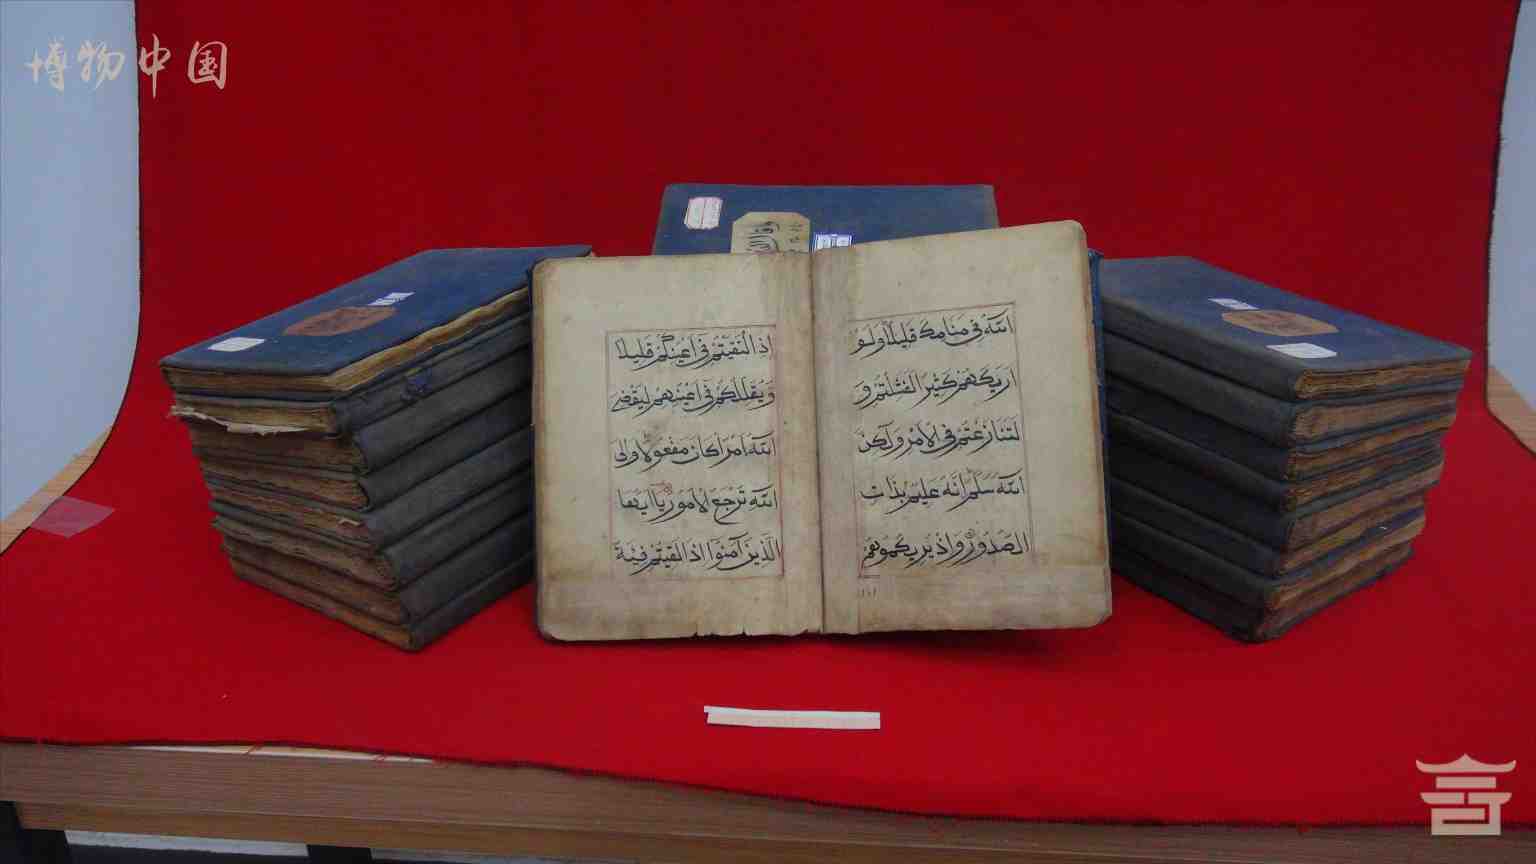 博物中国
الله في منامك قليلا ولو
اريكهم كثيرا لفشلتم و
لتنازعتم في الامر ولكن
الله سلم انه عليم بذات
الصدور واذ يريكموهم
اذ التقيتم في اعينكم قليلا
ويقللكم في اعينهم ليقضي
الله امرا كان مفعولا والى
الله ترجع الامور يا ايها
الذين آمنوا اذا لقيتم فئة